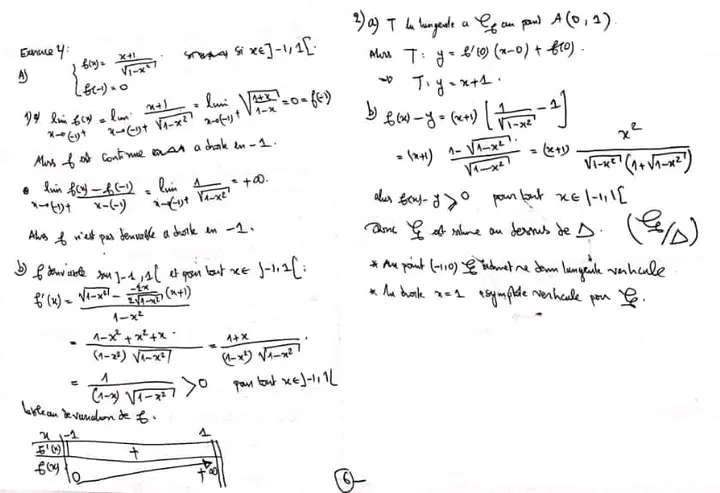 Exercice 4:
A) { f(x) = \frac{x+1}{\sqrt{1-x^2}} si x∈]-1,1[.
f(-1) = 0
1) a) lim_{x→(-1)^+} f(x) = lim_{x→(-1)^+} \frac{x+1}{\sqrt{1-x^2}} = lim_{x→(-1)^+} \sqrt{\frac{1+x}{1-x}} = 0 = f(-1)
Alors f est continue a droite en -1.
• lim_{x→(-1)^+} \frac{f(x)-f(-1)}{x-(-1)} = lim_{x→(-1)^+} \frac{1}{\sqrt{1-x^2}} = +∞.
Alors f n'est pas derivable a droite en -1.
b) f derivable sur ]-1,1[ et pour tout x∈ ]-1,1[:
f'(x) = \frac{\sqrt{1-x^2} - \frac{-2x}{2\sqrt{1-x^2}}(x+1)}{1-x^2}
= \frac{1-x^2+x^2+x}{(1-x^2)\sqrt{1-x^2}} = \frac{1+x}{(1-x^2)\sqrt{1-x^2}}
= \frac{1}{(1-x)\sqrt{1-x^2}} > 0 pour tout x∈]-1,1[
tableau de variation de f.
x -1 1
f'(x) +
f(x) 0 +∞
2) a) T la tangente a ℰf au point A(0,1).
Alors T: y = f'(0)(x-0) + f(0).
⇒ T: y = x+1.
b) f(x)-y = (x+1) [\frac{1}{\sqrt{1-x^2}} - 1]
= (x+1) \frac{1-\sqrt{1-x^2}}{\sqrt{1-x^2}} = (x+1) \frac{x^2}{\sqrt{1-x^2}(1+\sqrt{1-x^2})}
alors f(x)-y ⩾ 0 pour tout x∈]-1,1[
Donc ℰf est au dessus de Δ. (ℰf/Δ)
* Au point (-1,0) ℰf admet une demi tangente verticale.
* La droite x=1 asymptote verticale pour ℰf.
6